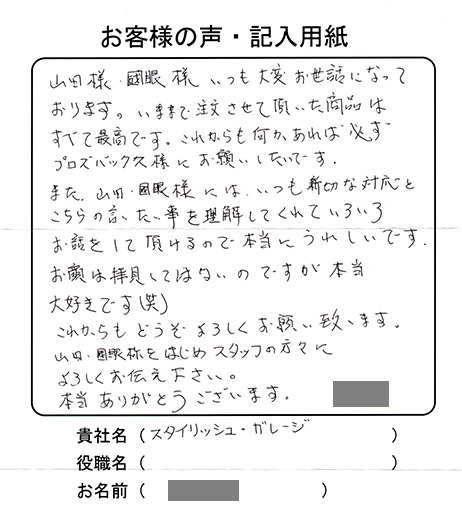 お客様の声・記入用紙
山田様・國眼様 いつも大変お世話になって
おります。いままで注文させて頂いた商品は
すべて最高です。これからも何かあれば必ず
プロズバックス様にお願いしたいです.
また、山田・國眼様には、いつも親切な対応と
こちらの言いたい事を理解してくれていろいろ
お話をして頂けるので本当にうれしいです.
お顔は拝見してはないのですが本当
大好きです(笑)
これからもどうぞよろしくお願い致します.
山田・國眼様をはじめスタッフの方々に
よろしくお伝え下さい。
本当ありがとうございます.
貴社名（スタイリッシュ・ガレージ）
役職名（ ）
お名前（ ）